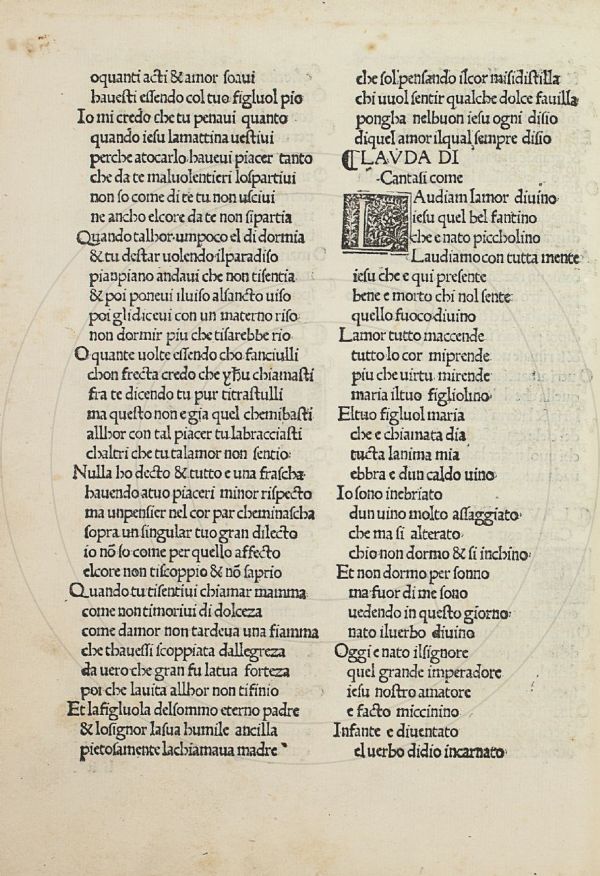 oquanti acti & amor soaui
hauesti essendo col tuo figluol pio
Io mi credo che tu penaui quanto
quando iesu lamattina uestiui
perche atocarlo haueui piacer tanto
che da te maluolentieri lospartiui
non so come di te tu non usciui
ne ancho elcore da te non sipartia
Quando talhor umpoco el di dormia
& tu destar uolendo ilparadiso
pianpiano andaui che non tisentia
& poi poneui iluiso alsancto uiso
poi glidiceui con un materno riso
non dormir piu che tisarebbe rio
O quante uolte essendo cho fanciulli
chon frecta credo che yhu chiamasti
fra te dicendo tu pur titrastulli
ma questo non e gia quel chemibasti
allhor con tal piacer tu labracciasti
chaltri che tu talamor non sentio
Nulla ho decto & tutto e una frascha
hauendo atuo piaceri minor rispecto
ma unpensier nel cor par cheminascha
sopra un singular tuo gran dilecto
io nõ so come per quello affecto
elcore non tiscoppio & nõ saprio
Quando tu tisentiui chiamar mamma
come non timoriui di dolceza
come damor non tardeua una fiamma
che thauessi scoppiata dallegreza
da uero che gran fu latua forteza
poi che lauita allhor non tifinio
Et lafigluola delsommo eterno padre
& losignor lasua humile ancilla
pietosamente lachiamaua madre
che sol pensando ilcor misidistilla
chi uuol sentir qualche dolce fauilla
pongha nelbuon iesu ogni disio
diquel amor ilqual sempre disio
LAVDA DI
Cantasi come
LAudiam lamor diuino
iesu quel bel fantino
che e nato piccholino
Laudiamo con tutta mente
iesu che e qui presente
bene e morto chi nol sente
quello fuoco diuino
Lamor tutto maccende
tutto lo cor miprende
piu che uirtu mirende
maria iltuo figliolino
El tuo figluol maria
che e chiamata dia
tucta lanima mia
ebbra e dun caldo uino
Io sono inebriato
dun uino molto assaggiato
che ma si alterato
chio non dormo & si inchino
Et non dormo per sonno
ma fuor di me sono
uedendo in questo giorno
nato iluerbo diuino
Oggi e nato ilsignore
quel grande imperadore
iesu nostro amatore
e facto miccinino
Infante e diuentato
el uerbo didio incarnato